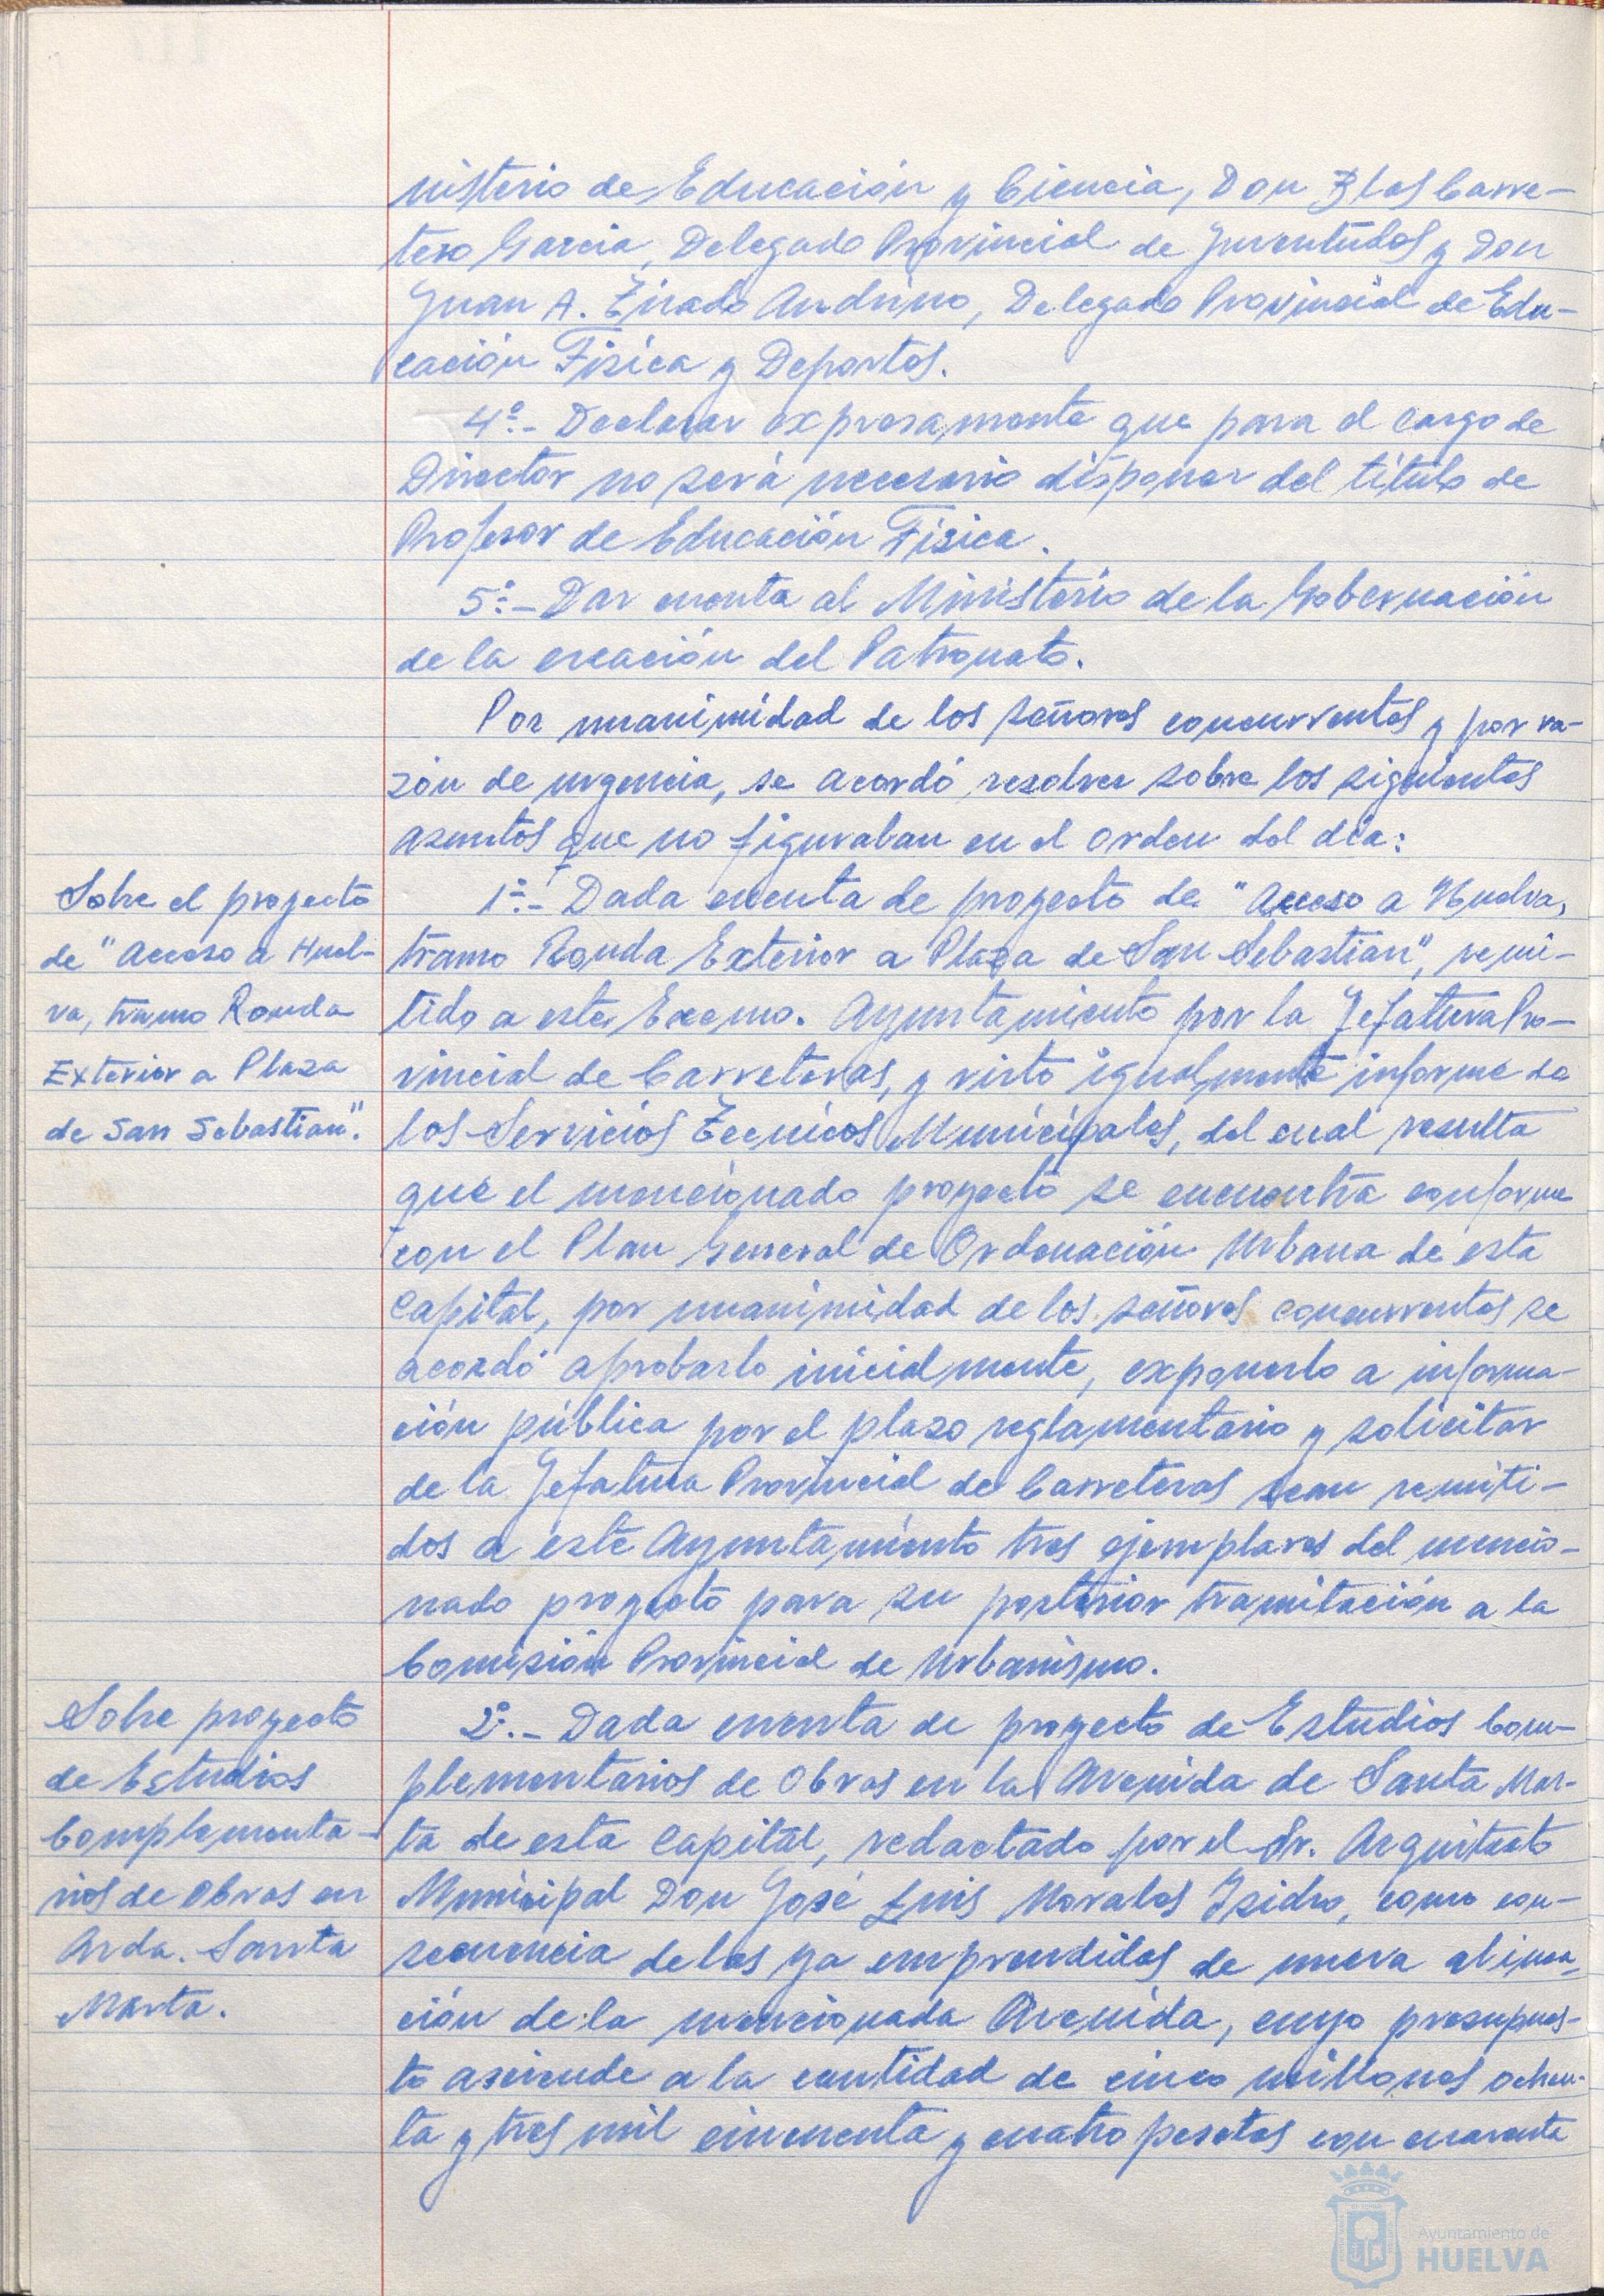 nisterio de Educación y Ciencia, Don Blas Carre-
tero García, Delegado Provincial de Juventudes y Don
Juan A. Tirado Andrino, Delegado Provincial de Edu-
cación Física y Deportes.
4º.- Declarar expresamente que para el cargo de
Director no será necesario disponer del título de
Profesor de Educación Física.
5º.- Dar cuenta al Ministerio de la Gobernación
de la creación del Patronato.
Por unanimidad de los señores concurrentes y por ra-
zón de urgencia, se acordó resolver sobre los siguientes
asuntos que no figuraban en el orden del día:
Sobre el proyecto
de "Acceso a Huel-
va, tramo Ronda
Exterior a Plaza
de San Sebastian".
1º.- Dada cuenta de proyecto de "Acceso a Huelva,
tramo Ronda Exterior a Plaza de San Sebastian", remi-
tido a este Excmo. Ayuntamiento por la Jefatura Pro-
vincial de Carreteras, y visto igualmente informe de
los Servicios Tecnicos Municipales, del cual resulta
que el mencionado proyecto se encuentra conforme
con el Plan General de Ordenación Urbana de esta
Capital, por unanimidad de los señores concurrentes se
acordó aprobarlo inicialmente, exponerlo a informa-
ción pública por el plazo reglamentario y solicitar
de la Jefatura Provincial de Carreteras sean remiti-
dos a este Ayuntamiento tres ejemplares del mencio-
nado proyecto para su posterior tramitación a la
Comisión Provincial de Urbanismo.
Sobre proyecto
de Estudios
Complementa-
rios de Obras en
Avda. Santa
Marta.
2º.- Dada cuenta de proyecto de Estudios Com-
plementarios de Obras en la Avenida de Santa Mar-
ta de esta Capital, redactado por el Sr. Arquitecto
Municipal Don José Luis Morales Isidro, como con-
secuencia de las ya emprendidas de nueva alinea-
ción de la mencionada Avenida, cuyo presupues-
to asciende a la cantidad de cinco millones ochen-
ta y tres mil cincuenta y cuatro pesetas con cuarenta
Ayuntamiento de
HUELVA